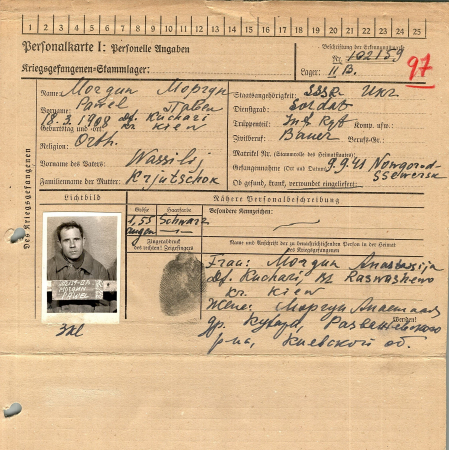 1 2 3 4 5 6 7 8 9 10 11 12 13 14 15 16 17 18 19 20 21 22 23 24 25
Personalkarte I: Personelle Angaben
Kriegsgefangenen-Stammlager:
Beschriftung der Erkennungsmarke
Nr. 102159
Lager: II B.
97
Des Kriegsgefangenen
Name: Morgun Моргун
Vorname: Pawel Павел
Geburtstag und -ort: 18.3.1908 df. Kuchari
kr. Kiew
Religion: Orth.
Vorname des Vaters: Wassilij
Familienname der Mutter: Krjutschok
Staatsangehörigkeit: SSSR Ukr.
Dienstgrad: Soldat
Truppenteil: Inf. Rgt Komp. usw.:
Zivilberuf: Bauer Berufs-Gr.:
Matrikel Nr. (Stammrolle des Heimatstaates):
Gefangennahme (Ort und Datum): 9.9.41 Nowgorod-
Ssewersk
Ob gesund, krank, verwundet eingeliefert:
Lichtbild
Nähere Personalbeschreibung
Größe
1,55
Haarfarbe
Schwarz
Besondere Kennzeichen:
Fingerabdruck
des rechten Zeigefingers
Name und Anschrift der zu benachrichtigenden Person in der Heimat
des Kriegsgefangenen
Frau: Morgun Anastasija
df. Kuchari, Rz Raswashewo
kr. Kiew
Жена: Моргун
р-на, Киевской об.
MORGUN
PAWEL